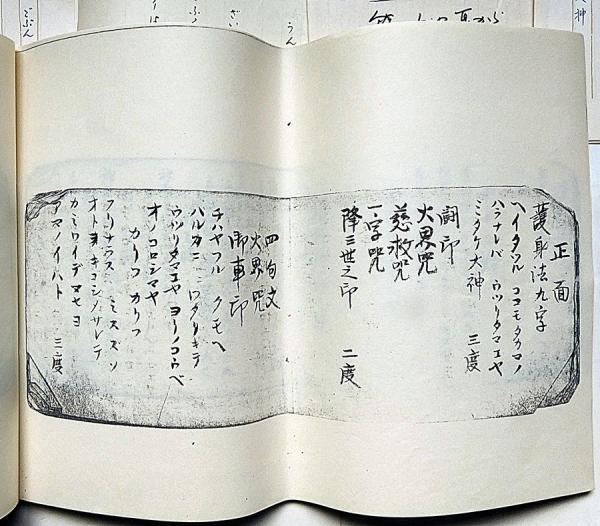 正面
護身法九字
ヘイタツル ココモタカマノ
ハラナレバ ウツリタマエヤ
ミタケ大神 三度
闘印
火界咒
慈救咒
一字咒
降三世之印 二度
四句文
火界咒
御車印
チハヤフル クモヘ
ハルカニ ワタリキテ
ウツリタマエヤ ヨリノコウベ
オノコロシマヤ
カリコ カリコ
フリナラス ミスズノ
カミワイデマセヨ
アマノイハト 三度
うん
ざい
ごぶん